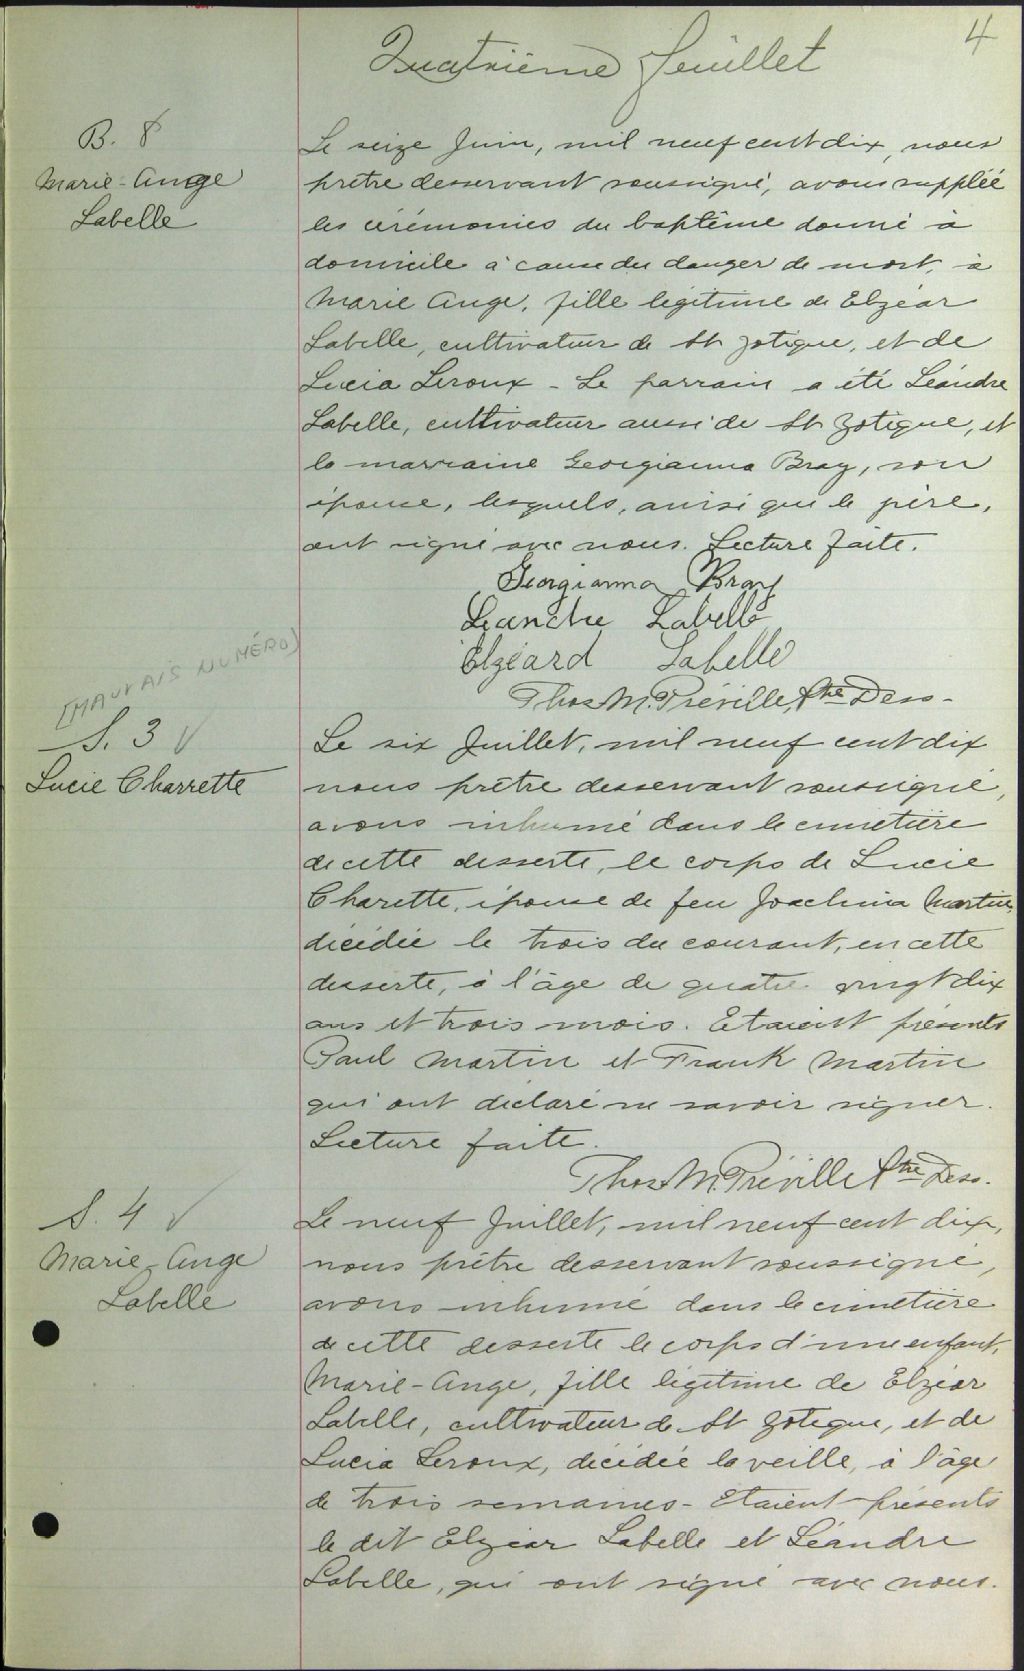 4
Quatrième feuillet
B. 8
Marie-Ange
Labelle
Le seize Juin, mil neuf cent dix, nous
prêtre desservant soussigné, avons suppléé
les cérémonies du baptême donné à
domicile à cause du danger de mort, à
Marie Ange, fille légitime de Elzéar
Labelle, cultivateur de St Zotique, et de
Lucia Leroux - Le parrain a été Léandre
Labelle, cultivateur aussi de St Zotique, et
la marraine Georgianna Bray, son
épouse, lesquels, ainsi que le père,
ont signé avec nous. Lecture faite.
Georgianna Bray
Leandre Labelle
Elzéard Labelle
Thos. M. Préville, Ptre Dess-
[MAUVAIS NUMÉRO]
S. 3 ✓
Lucie Charrette
Le six Juillet, mil neuf cent dix
nous prêtre desservant soussigné,
avons inhumé dans le cimetière
de cette desserte, le corps de Lucie
Charette, épouse de feu Joachim Martin,
décédée le trois du courant, en cette
desserte, à l'âge de quatre vingt dix
ans et trois mois. Etaient présents
Paul Martin et Frank Martin
qui ont déclaré ne savoir signer.
Lecture faite.
Thos. M. Préville Ptre Dess.
S. 4 ✓
Marie-Ange
Labelle
Le neuf Juillet, mil neuf cent dix,
nous prêtre desservant soussigné,
avons inhumé dans le cimetière
de cette desserte le corps d'une enfant,
Marie-Ange, fille légitime de Elzéar
Labelle, cultivateur de St Zotique, et de
Lucia Leroux, décédée la veille, à l'âge
de trois semaines - Etaient présents
le dit Elzéar Labelle et Léandre
Labelle, qui ont signé avec nous.